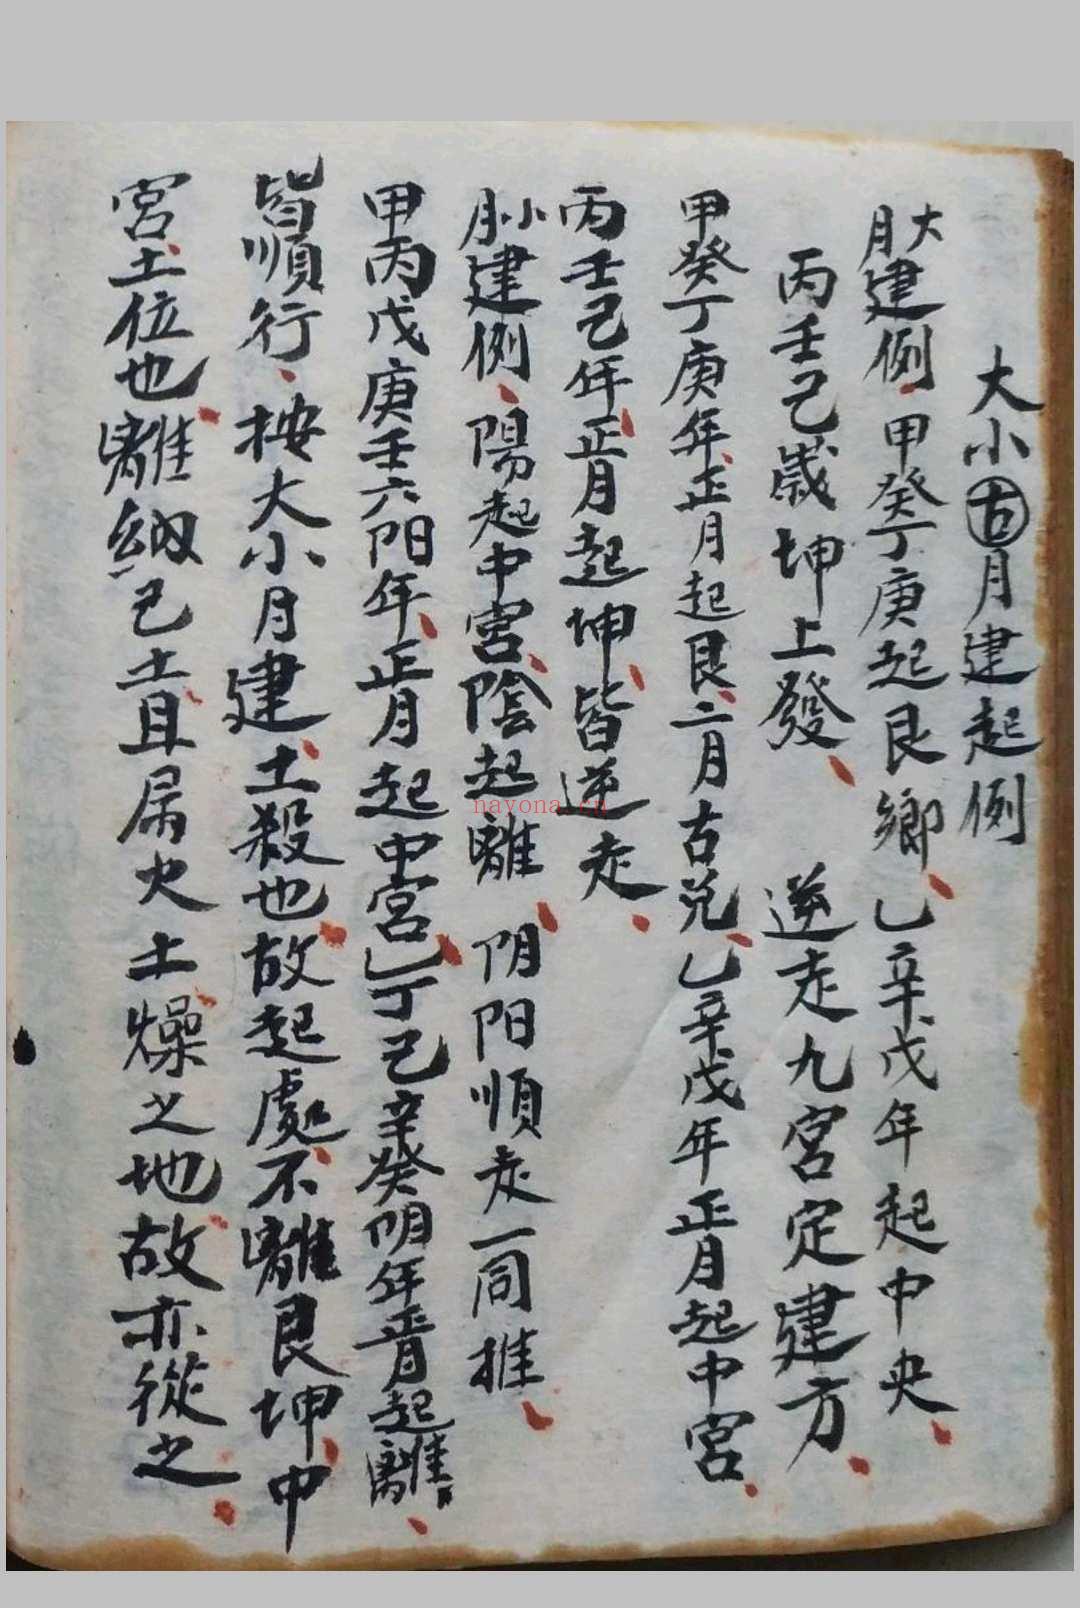 大小古月建起例
大月建例甲癸丁庚起艮鄉乙辛戊年起中央
丙壬己歲坤上發 逆走九宮定建方
甲癸丁庚年正月起艮二月古兑乙辛戊年正月起中宮
丙壬己年正月起坤皆逆走
小月建例陽起中宮陰起離 阴阳順走一同推
甲丙戊庚壬六阳年正月起中宮乙丁己辛癸阴年正月起離
皆順行按大小月建土殺也故起處不離艮坤中
宮土位也離納己土且屬火土燥之地故亦從之
nayona.cn